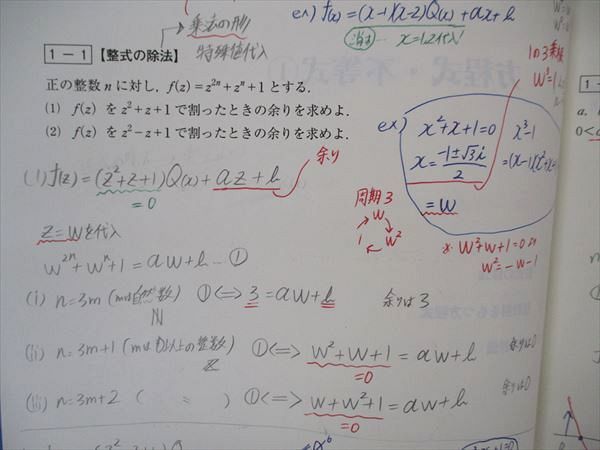 乗法の形
特殊値代入
ex) f(x)=(x-1)(x-2)Q(x)+ax+b
消す x=1,2代入
1-1 【整式の除法】
正の整数 n に対し, f(z)=z²ⁿ+zⁿ+1 とする.
(1) f(z) を z²+z+1 で割ったときの余りを求めよ.
(2) f(z) を z²-z+1 で割ったときの余りを求めよ.
1の3乗根
W³=1
ex) x²+x+1=0
x³-1
x=(-1±√3i)/2
=(x-1)(x²+x+1)
=W
(1) f(z)=(z²+z+1)Q(x)+az+b
余り
=0
周期3
W
1
W²
Z=Wを代入
W²ⁿ+Wⁿ+1=aW+b…①
※W²+W+1=0より
W²=-W-1
(i) n=3m (mは自然数) ①⇔3=aW+b 余りは3
N
(ii) n=3m+1 (mは0以上の整数) ①⇔W²+W+1=aW+b 余りは0
Z
=0
(iii) n=3m+2 ( 〃 ) ①⇔W+W²+1=aW+b 余りは0
=0